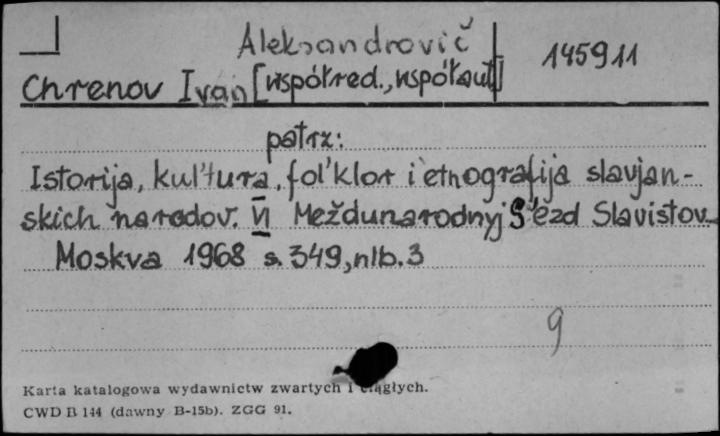 Aleksandrovič 145911
Chrenov Ivan [współred., współaut]
patrz:
Istorija, kul'tura, fol'klor i etnografija slavjan-
skich narodov. VI Meždunarodnyj S"ezd Slavistov
Moskva 1968 s. 349, nlb. 3
9
Karta katalogowa wydawnictw zwartych i ciągłych.
CWD B 144 (dawny B-15b). ZGG 91.